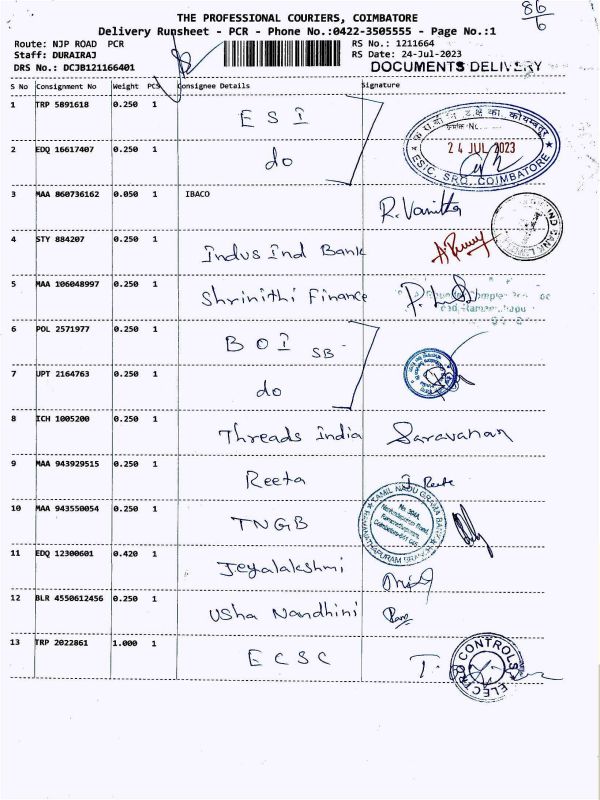 86
6
THE PROFESSIONAL COURIERS, COIMBATORE
Delivery Runsheet - PCR - Phone No.:0422-3505555 - Page No.:1
Route: NJP ROAD PCR RS No.: 1211664
Staff: DURAIRAJ RS Date: 24-Jul-2023
DRS No.: DCJB121166401 DOCUMENTS DELIVERY
S No Consignment No Weight PCS Consignee Details Signature
1 TRP 5891618 0.250 1 ESI
2 EDQ 16617407 0.250 1 do
24 JUL 2023
ESIC. SRO. COIMBATORE
3 MAA 860736162 0.050 1 IBACO R. Vanitha
4 STY 884207 0.250 1 Indus Ind Bank
5 MAA 106048997 0.250 1 Shrinithi Finance
6 POL 2571977 0.250 1 BOI SB
7 UPT 2164763 0.250 1 do
8 ICH 1005200 0.250 1 Threads India Saravanan
9 MAA 943929515 0.250 1 Reeta J. Reeta
10 MAA 943550054 0.250 1 TNGB
TAMIL NADU GRAMA BANK
RAMANATHAPURAM BRANCH
11 EDQ 12300601 0.420 1 Jeyalalakshmi
12 BLR 4550612456 0.250 1 Usha Nandhini
13 TRP 2022861 1.000 1 ECSC
ELECTRO CONTROLS